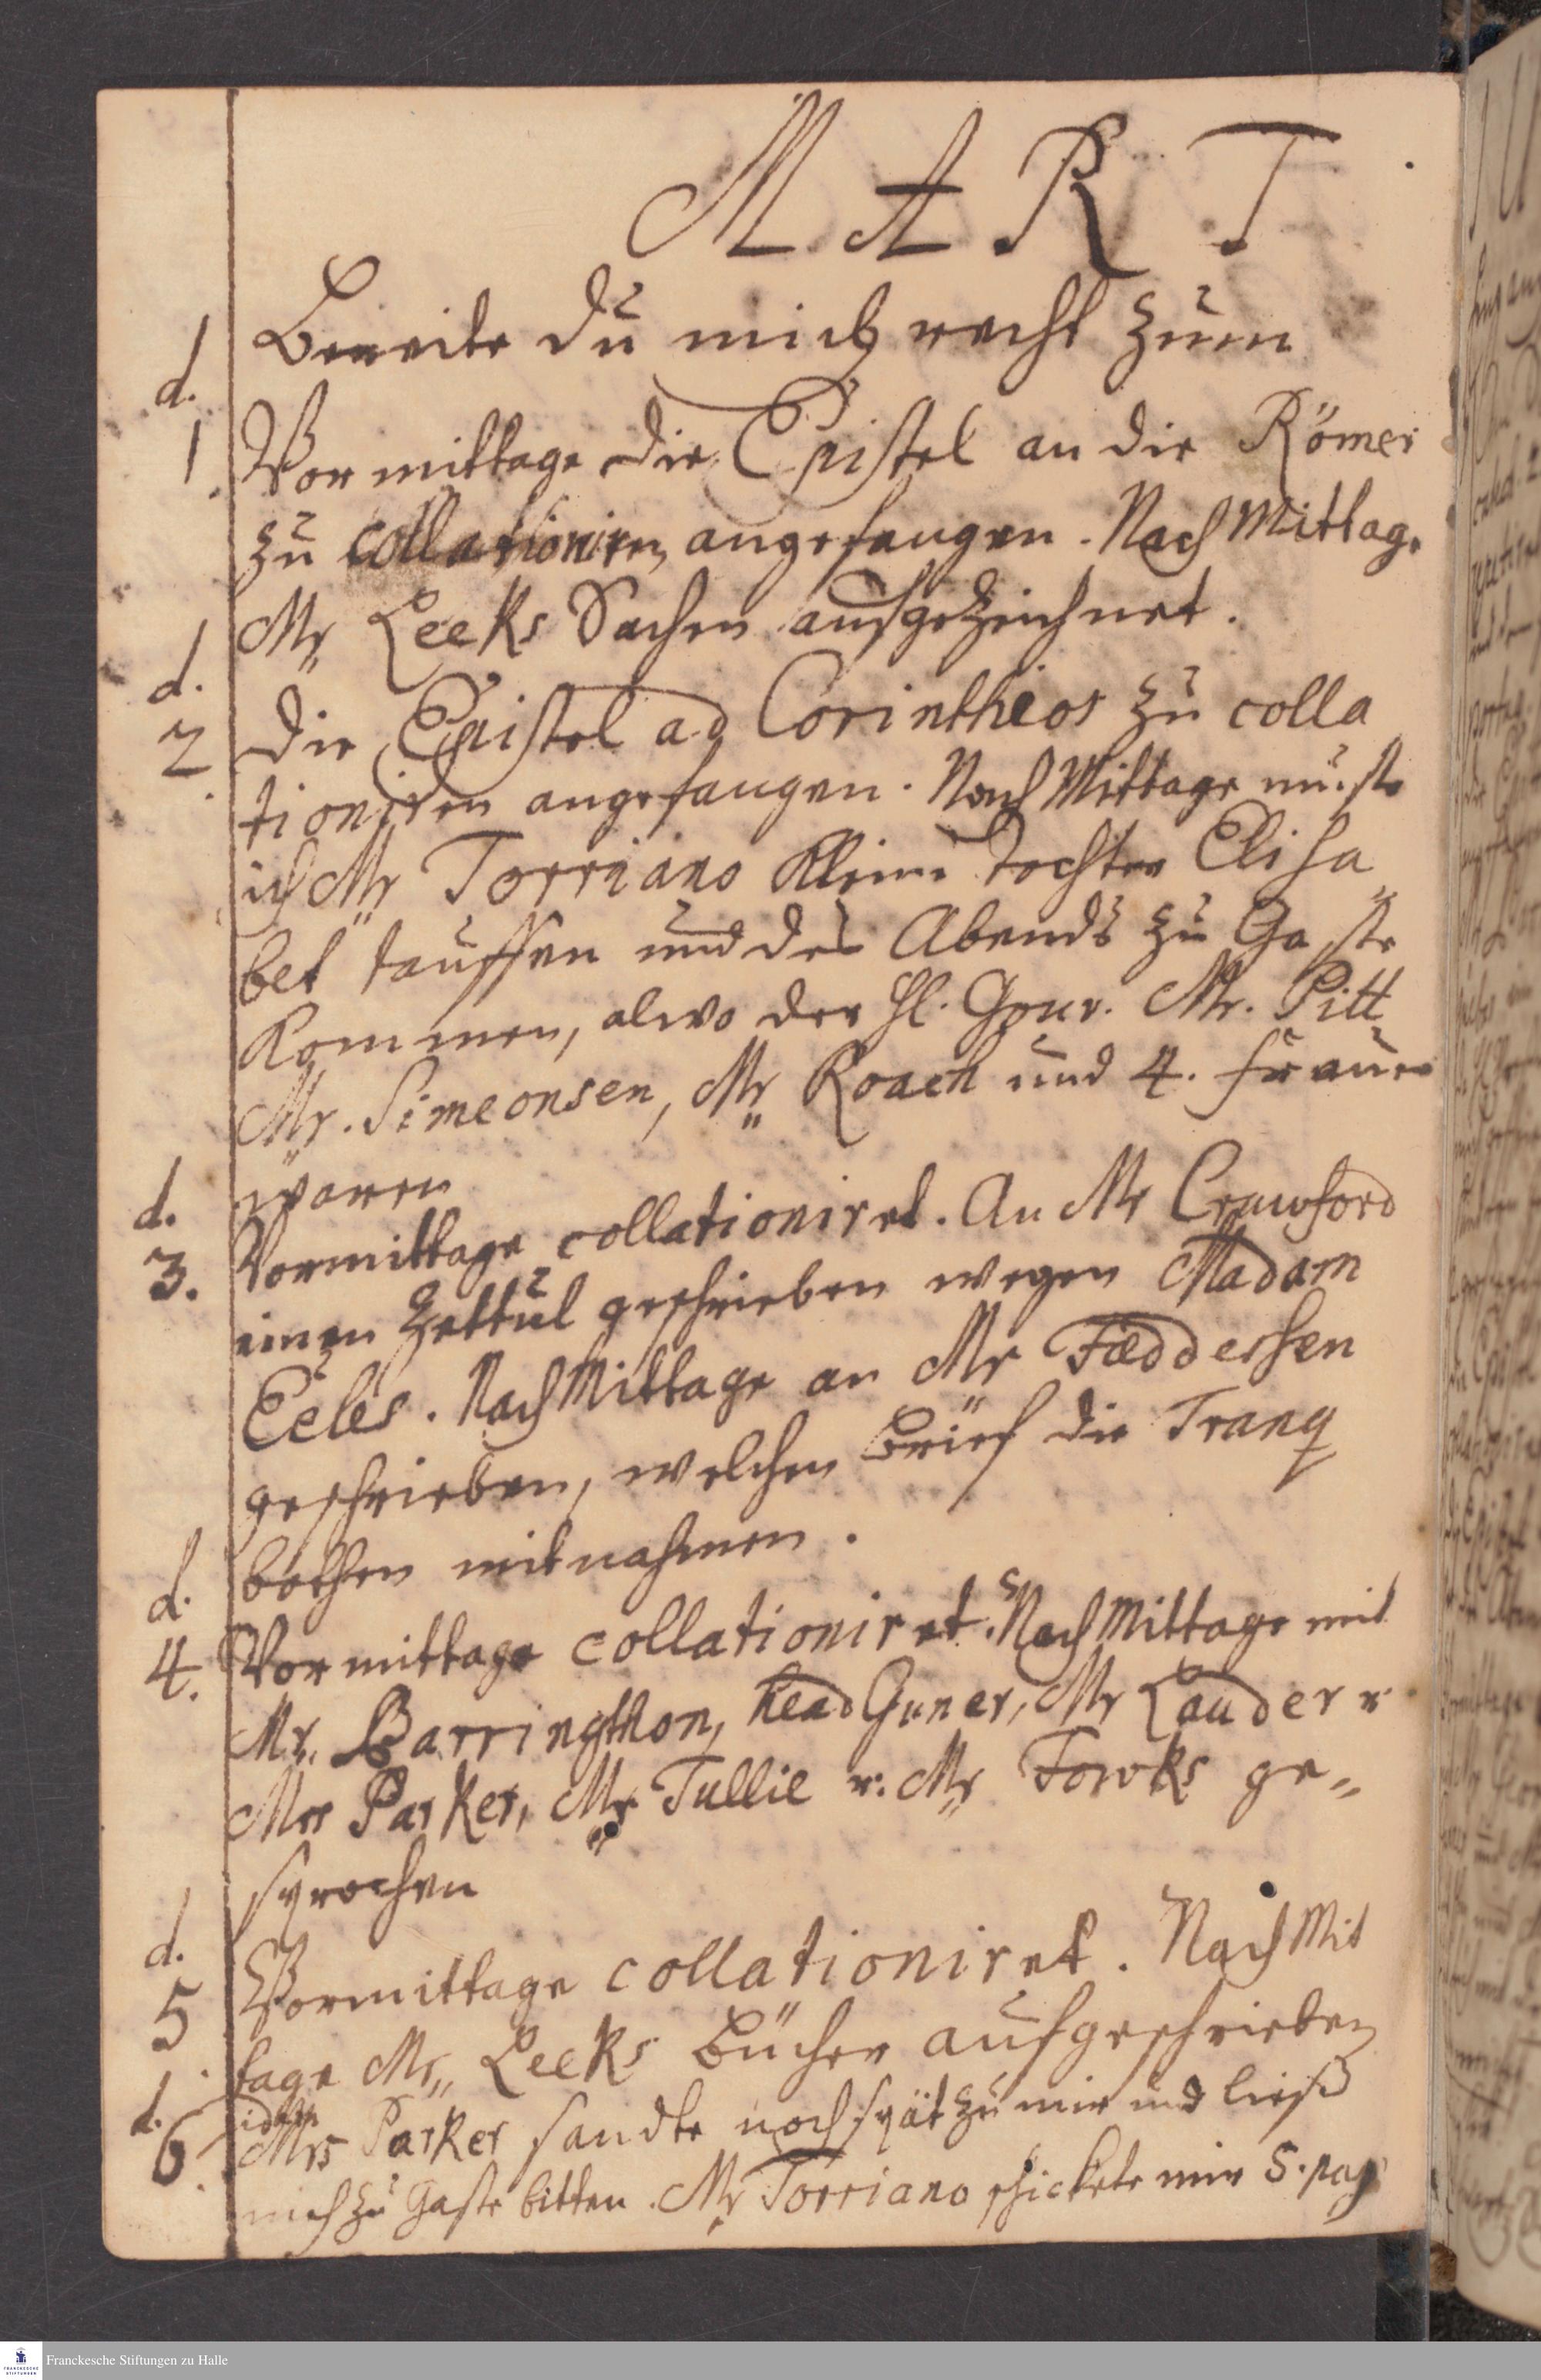 M A R T
Bereite du mich recht zum
d.
1 Vormittage die Epistel an die Römer
zu collationiren angefangen. Nach Mittage
Mr Leeks Sachen aufgezeichnet.
d.
2 die Epistel ad Corinthios zu colla
tioniren angefangen. Nach Mittage muste
ich Mr Torriano kleine Tochter Elisa
bet tauffen und des Abends zu Gaste
kommen, alwo der Hl. Gouv. Mr. Pitt
Mr. Simeonsen, Mr Roach und 4. Frauen
waren
d.
3. Vormittage collationiret. An Mr Crawford
einen Zettul geschrieben wegen Madam
Eeles. Nach Mittage an Mr Fæddersen
geschrieben, welchen Brief die Tranq
bothen mitnahmen.
d.
4. Vormittage collationiret. Nach Mittage mit
Mr. Barringthon, head Guner, Mr Lauder u
Mrs Parker, Mr Tullie u. Mr Fowks ge„
sprochen
d.
5 Vormittage collationiret. Nach Mit
tage Mr„ Leeks Bücher aufgeschrieben
d. idem
6 Mrs Parker sandte noch spät zu mir und ließ
mich zu Gaste bitten. Mr Torriano schickete mir 5. pag
Franckesche Stiftungen zu Halle
FRANCKESCHE
STIFTUNGEN